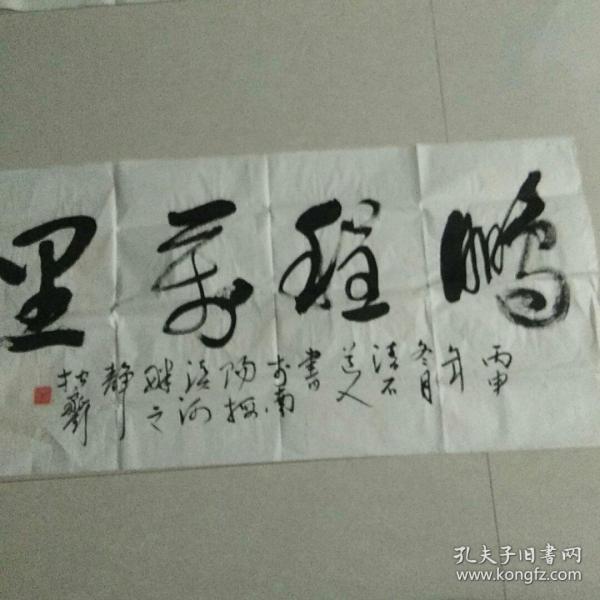 鹏程万里
丙申
年
冬月
清石
道人
书
于南
阳梅
溪河
畔之
静
拙斋
孔夫子旧书网
www.kongfz.com